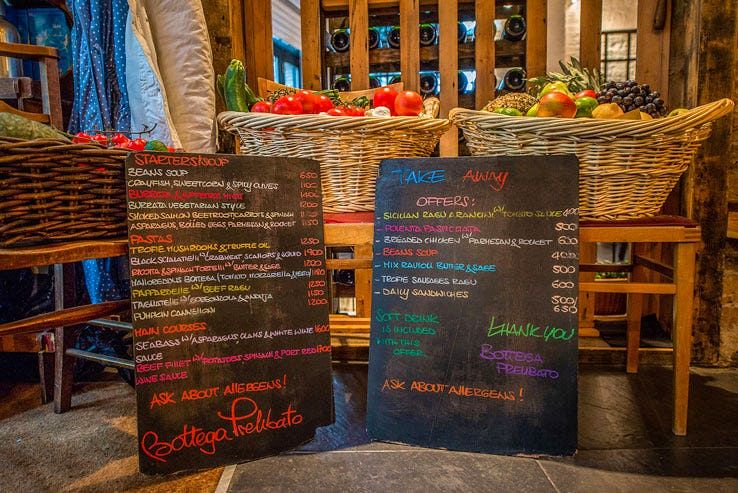 STARTERS & SOUP
BEANS SOUP 650
CRAYFISH, SWEETCORN & SPICY OLIVES
BURRATA &
BURRATA VEGETARIAN STYLE
SMOKED SALMON BEETROOT CARROTS & SPINACH
ASPARAGUS, BOILED EGGS PARMESAN & ROCKET
PASTAS
TROFIE MUSHROOMS & TRUFFLE OIL 1250
BLACK W/ CRABMEAT SCALLOPS &
RICOTTA & SPINACH TORTELLI W/ BUTTER & SAGE
BOTTEGA (TOMATO, MOZZARELLA,
PAPPARDELLE W/ BEEF RAGU
TAGLIATELLE W/ & 'NDUJA
PUMPKIN CANNELLONI 1200
MAIN COURSES
SEABASS W/ ASPARAGUS CLAMS & WHITE WINE 1600
SAUCE
BEEF FILLET W/ POTATOES SPINACH & PORT RED 1700
WINE SAUCE
ASK ABOUT ALLERGENS!
Bottega Prelibato
TAKE AWAY
OFFERS:
- SICILIAN RAGU ARANCINI W/ TOMATO SAUCE 400
- POLENTA PASTICCIATA 500
- BREADED CHICKEN W/ PARMESAN & ROCKET 600
- BEANS SOUP 400
- MIX RAVIOLI BUTTER & SAGE 500
- TROFIE SAUSAGES RAGU 500
- DAILY SANDWICHES 500/
650
SOFT DRINK
IS INCLUDED
WITH THIS
OFFER.
THANK YOU
BOTTEGA
PRELIBATO
ASK ABOUT ALLERGENS!